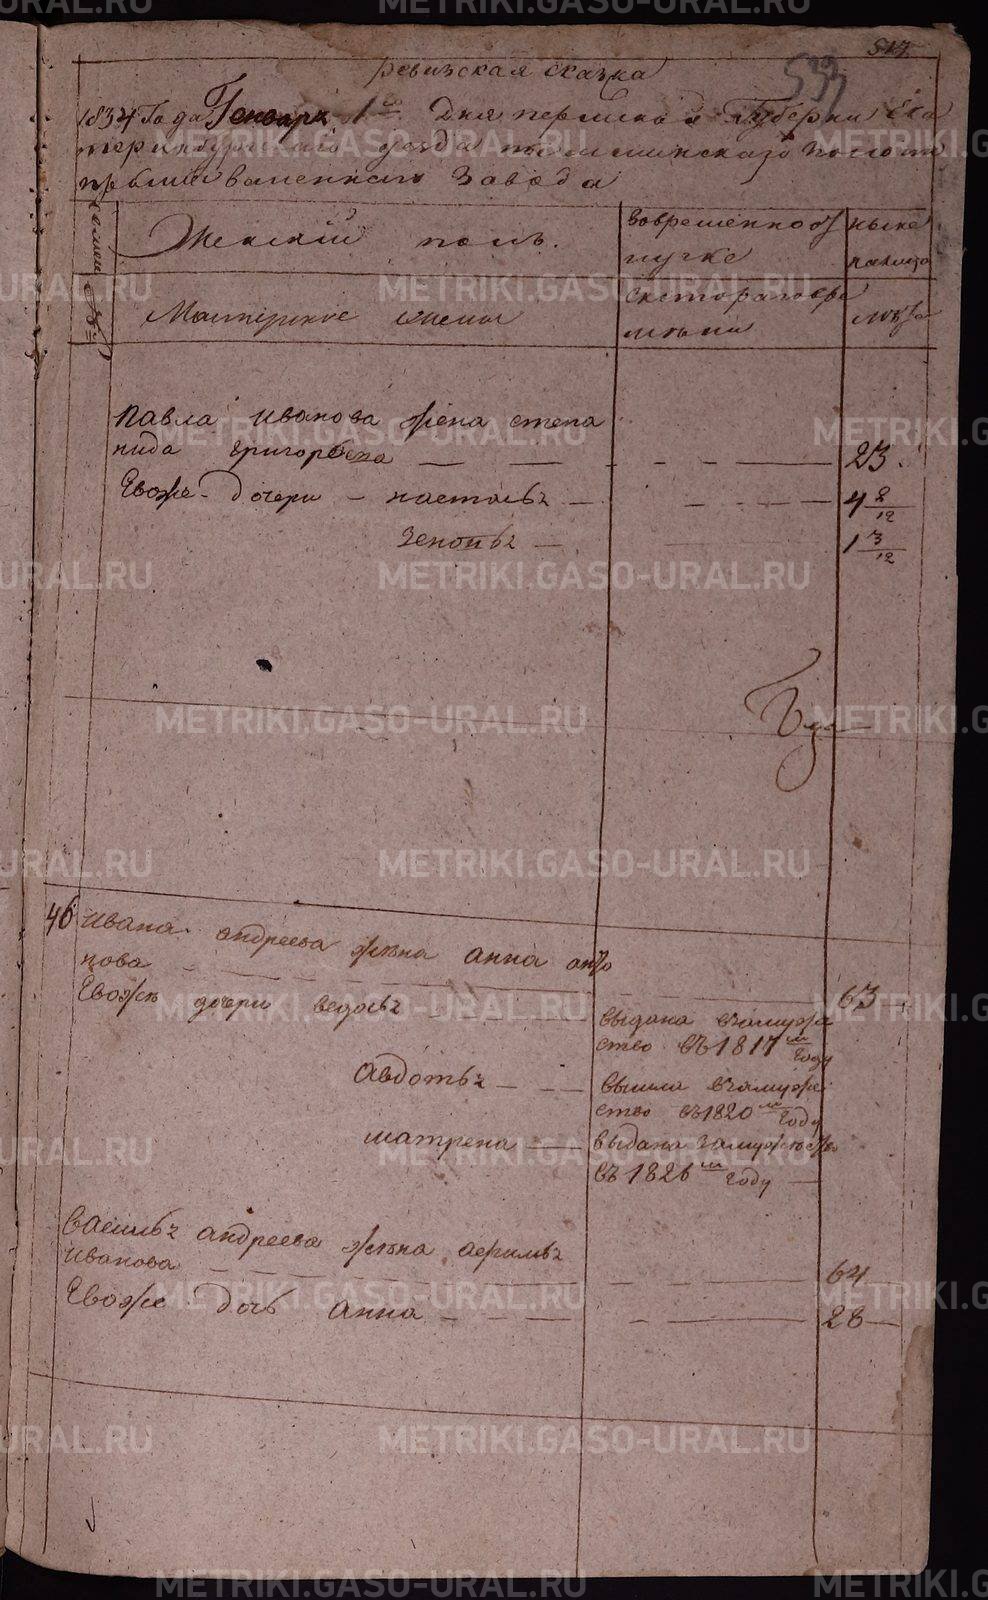 517
533
ревизская сказка
1834 Года Генваря 1го Дня пермской Губернии Ека
теринбургского уезда
Каменнаго Завода
семей №
Женский полъ.
вовременной от
лучке
ныне
налицо
Мастерские жены
скотораго вре
мени
лѣта
павла иванова жена степа
нида григорьева — — — — — 23.
Евоже дочери — настасья — — — — 4 8/12
Зеновья — 1 3/12
46 ивана андреева жена анна анто
нова — — — 63
Евоже дочери ведосья — — — выдана взамуже
ство въ 1817м году
Авдотья — — вышла взамуже
ство въ 1820м году
матрена — выдана замужество
въ 1826м году —
Василья андреева жена
иванова — — — 64
Евоже дочь анна — — — — 28 —
METRIKI.GASO-URAL.RU